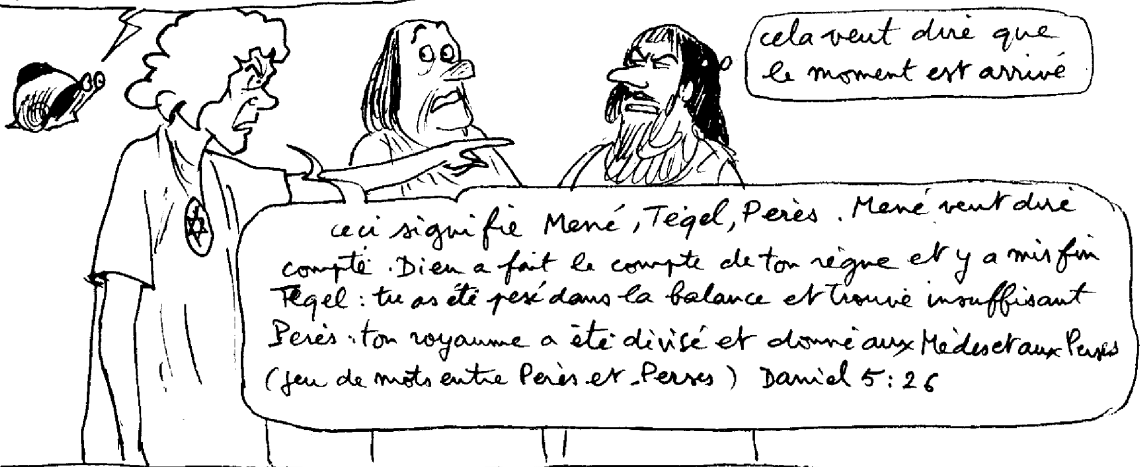 cela veut dire que
le moment est arrivé
ceci signifie Mené, Téqel, Perès. Mené veut dire
compté. Dieu a fait le compte de ton règne et y a mis fin
Téqel : tu as été pesé dans la balance et trouvé insuffisant
Perès : ton royaume a été divisé et donné aux Mèdes et aux Perses
(jeu de mots entre Perès et Perses) Daniel 5:26